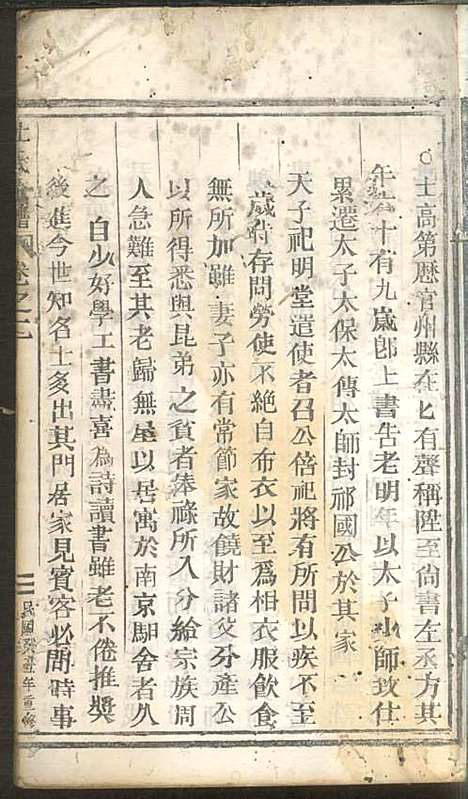 士高第歷官州縣在々有聲稱陞至尚書左丞方其
年六十有九歲卽上書告老明年以太子少師致仕
累遷太子太保太傅太師封祁國公於其家
天子祀明堂遣使者召公倍祀將有所問以疾不至
歲時存問勞使不絕自布衣以至爲相衣服飲食
無所加雖妻子亦有常節家故饒財諸父分產公
以所得悉與昆弟之貧者俸祿所入分給宗族周
人急難至其老歸無屋以居寓於南京馹舍者久
之自少好學工書畵喜為詩讀書雖老不倦推奬
後進今世知名士多出其門居家見賓客必問時事
氏 譜 卷之二
民國癸丑年重修